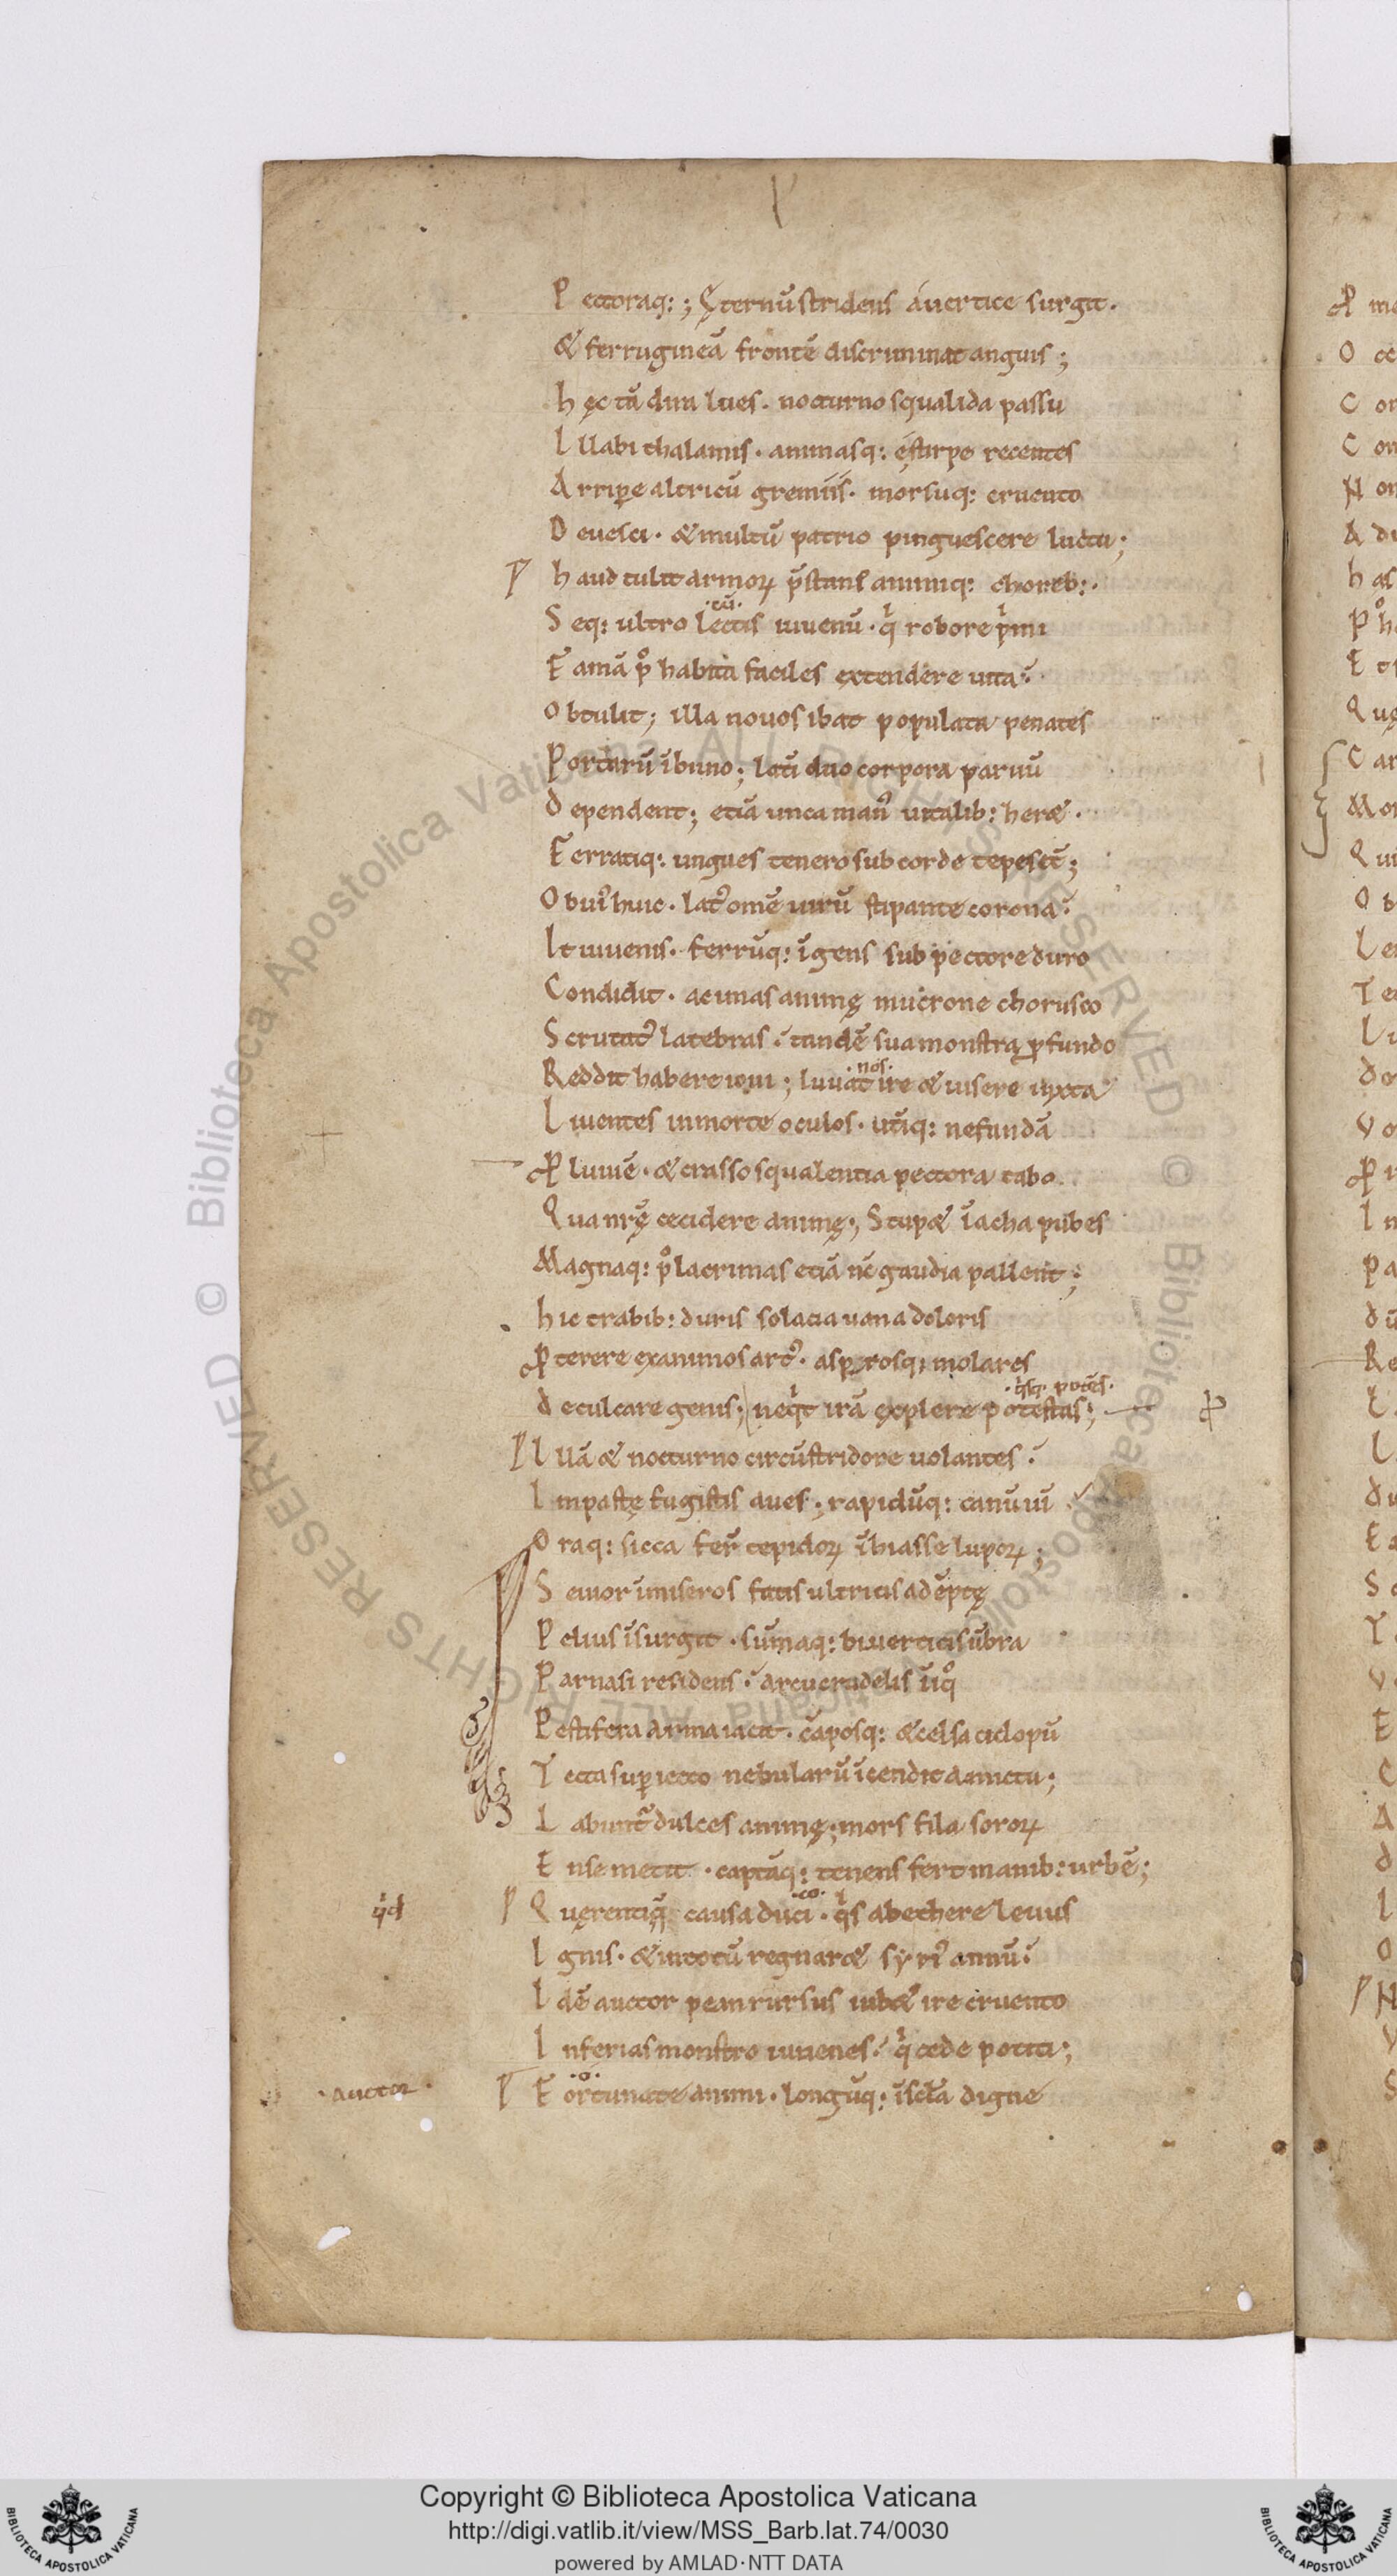 P ectoraq:; Ęternũ stridens áuertice surgit.
& ferrugineã frontẽ discriminat anguis;
h ęc tã dira lues. nocturno squalida passu
I llabi thalamis. animasq: éstirpe recentes
A rripe altricũ gremiis. morsuq: cruento
D euesci. & multũ patrio pinguescere luctu;
h aud tulit armoꝝ p̃stans animiq: choreb:.
.cũ.
S eq: ultro lectis iuuenũ. qͥ robore pͥmi
F amã pͦ habita faciles extendere uita
O btulit; illa nouos ibat populata penates
P ortarũ ĩbiuio; latĩ duo corpora paruũ
D ependent; etiã unca man᾿ uitalib: her&.
F erratiq: ungues tenero sub corde tepesct̃;
O bui᾿ huic. lat᾿ omẽ uirũ stipante corona
I t iuuenis. ferrũq: ĩgens sub pectore duro
Condidit. ac imas animę mucrone chorusco
S crutat᾿ latebras. tandẽ sua monstra ꝓfundo
.nos.
Reddit habere ioui; Iuuat ire & uisere iuxta
L iuentes inmorte oculos. utĩq: nefandã
ꝓ luuiẽ. & crasso squalentia pectora tabo.
Qua nrę cecidere animę; Stup& ĩacha pubes
Magnaq: pͦ lacrimas etiã nc̃ gaudia pallent;
h ic trabib: duris solacia uana doloris
ꝓ terere exanimos art᾿. asꝑrosq; molares
.qͥsq. potẽs.
d eculcare genis; neqͥt irã explere potestas;
I llã & nocturno circũstridore uolantes.
I mpastę fugistis aues; rapidũq: canũ uĩ
O raq: sicca fer̃ tepidoꝝ ĩhiasse lupoꝝ;
S euior ĩmiseros fatis ultricis adẽptę
P elius ĩsurgit. sũmaq: biuerticis ũbra
P arnasi residens. arcu crudelis ĩiqͦ
P estifera arma iacit. cãposq: & celsa ciclopũ
T ecta suꝑiecto nebularũ ĩcendit amictu;
L abunt᷑ dulces animę; mors fila sororꝝ
E nse metit. captãq: tenens fert manib: urbẽ;
.co.
qͥd
Q uęrentiq̃ causa duci. qͥs abethere leuus
I gnis. & intotũ regnar& syri᾿ annũ
I dẽ auctor pean rursus iub& ire cruento
I nferias monstro iuuenes. qͥ cede potiti;
.o.
.auctor.
F ortunate animi. longũq: ĩsc̃la digne
Copyright © Biblioteca Apostolica Vaticana
http://digi.vatlib.it/view/MSS_Barb.lat.74/0030
powered by AMLAD·NTT DATA